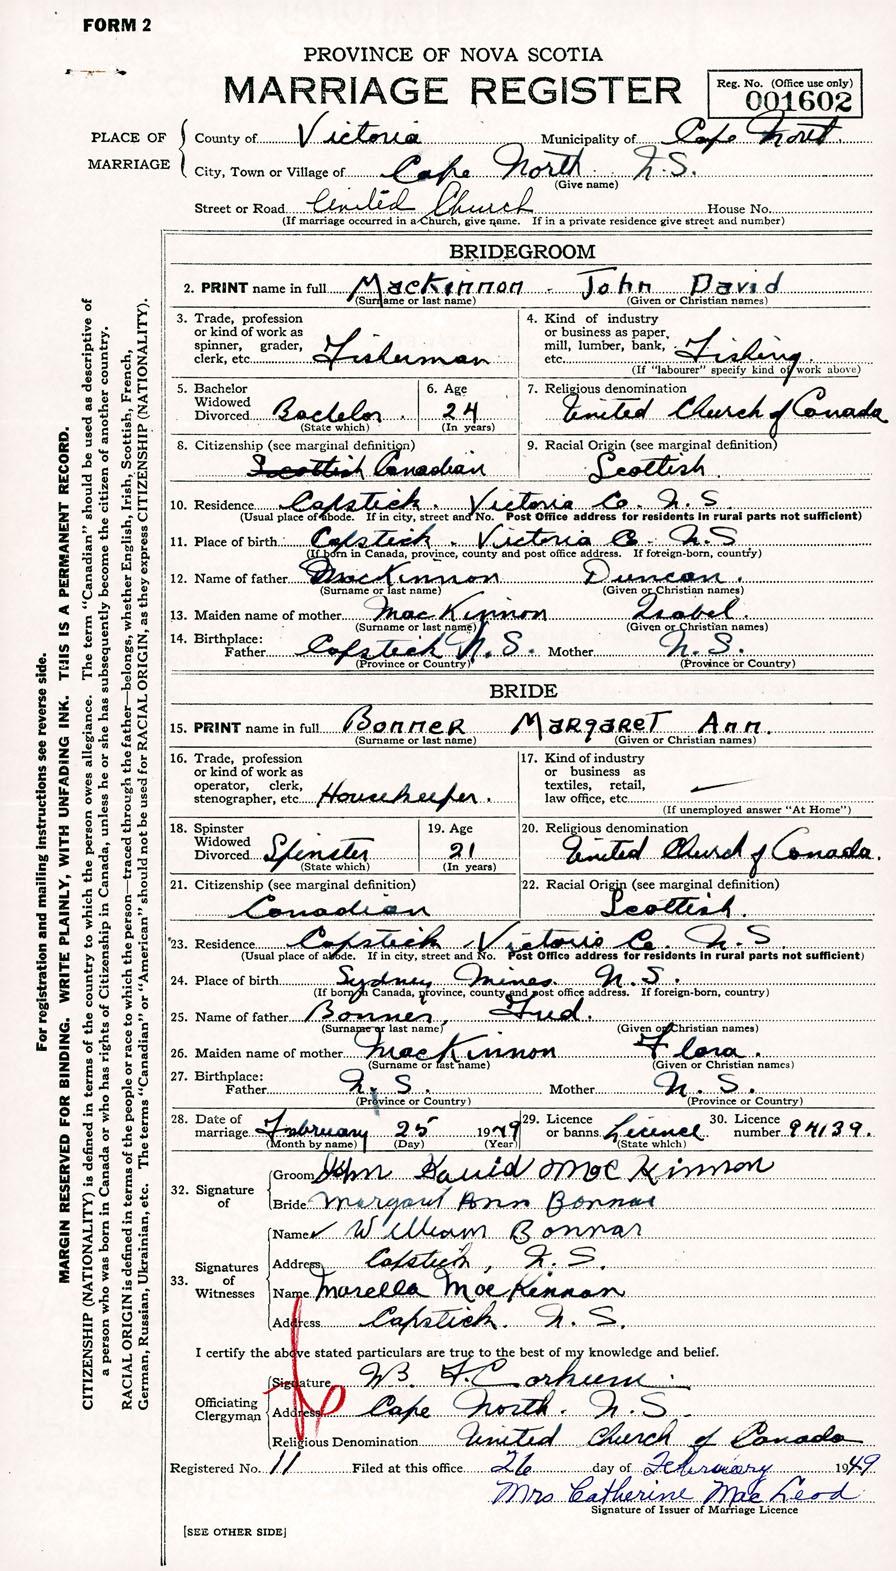 FORM 2
PROVINCE OF NOVA SCOTIA
MARRIAGE REGISTER
Reg. No. (Office use only)
001602
PLACE OF MARRIAGE
County of Victoria Municipality of Cape North
City, Town or Village of Cape North N.S.
(Give name)
Street or Road United Church House No.
(If marriage occurred in a Church, give name. If in a private residence give street and number)
BRIDEGROOM
2. PRINT name in full MacKinnon - John David
(Surname or last name) (Given or Christian names)
3. Trade, profession or kind of work as spinner, grader, clerk, etc. Fisherman
4. Kind of industry or business as paper, mill, lumber, bank, etc. Fishing
(If "labourer" specify kind of work above)
5. Bachelor Widowed Divorced Bachelor.
(State which)
6. Age 24
(In years)
7. Religious denomination United Church of Canada
8. Citizenship (see marginal definition) Scottish Canadian
9. Racial Origin (see marginal definition) Scottish
10. Residence Capstick. Victoria Co. N.S
(Usual place of abode. If in city, street and No. Post Office address for residents in rural parts not sufficient)
11. Place of birth Capstick. Victoria Co. N.S
(If born in Canada, province, county and post office address. If foreign-born, country)
12. Name of father MacKinnon Duncan.
(Surname or last name) (Given or Christian names)
13. Maiden name of mother MacKinnon Isabel.
(Surname or last name) (Given or Christian names)
14. Birthplace:
Father Capstick N.S. Mother N.S.
(Province or Country) (Province or Country)
BRIDE
15. PRINT name in full Bonner Margaret Ann.
(Surname or last name) (Given or Christian names)
16. Trade, profession or kind of work as operator, clerk, stenographer, etc. Housekeeper.
17. Kind of industry or business as textiles, retail, law office, etc. —
(If unemployed answer "At Home")
18. Spinster Widowed Divorced Spinster
(State which)
19. Age 21
(In years)
20. Religious denomination United Church of Canada.
21. Citizenship (see marginal definition) Canadian
22. Racial Origin (see marginal definition) Scottish.
23. Residence Capstick Victoria Co. N.S
(Usual place of abode. If in city, street and No. Post Office address for residents in rural parts not sufficient)
24. Place of birth Sydney Mines. N.S.
(If born in Canada, province, county and post office address. If foreign-born, country)
25. Name of father Bonner, Fred.
(Surname or last name) (Given or Christian names)
26. Maiden name of mother MacKinnon Flora.
(Surname or last name) (Given or Christian names)
27. Birthplace:
Father N.S. Mother N.S.
(Province or Country) (Province or Country)
28. Date of marriage February 25 1949
(Month by name) (Day) (Year)
29. Licence or banns Licence
(State which)
30. Licence number 94139.
32. Signature of
Groom John David MacKinnon
Bride Margaret Ann Bonnar
33. Signatures of Witnesses
Name William Bonnar
Address Capstick, N.S.
Name MacKinnon
Address Capstick. N.S.
I certify the above stated particulars are true to the best of my knowledge and belief.
Officiating Clergyman
Signature W. F. Corkum
Address Cape North. N.S.
Religious Denomination United Church of Canada
Registered No. 11 Filed at this office 26 day of February 1949
Mrs Catherine MacLeod
Signature of Issuer of Marriage Licence
[SEE OTHER SIDE]
For registration and mailing instructions see reverse side.
MARGIN RESERVED FOR BINDING. WRITE PLAINLY, WITH UNFADING INK. THIS IS A PERMANENT RECORD.
CITIZENSHIP (NATIONALITY) is defined in terms of the country to which the person owes allegiance. The term "Canadian" should be used as descriptive of
a person who was born in Canada or who has rights of Citizenship in Canada, unless he or she has subsequently become the citizen of another country.
RACIAL ORIGIN is defined in terms of the people or race to which the person—traced through the father—belongs, whether English, Irish, Scottish, French,
German, Russian, Ukrainian, etc. The terms "Canadian" or "American" should not be used for RACIAL ORIGIN, as they express CITIZENSHIP (NATIONALITY).